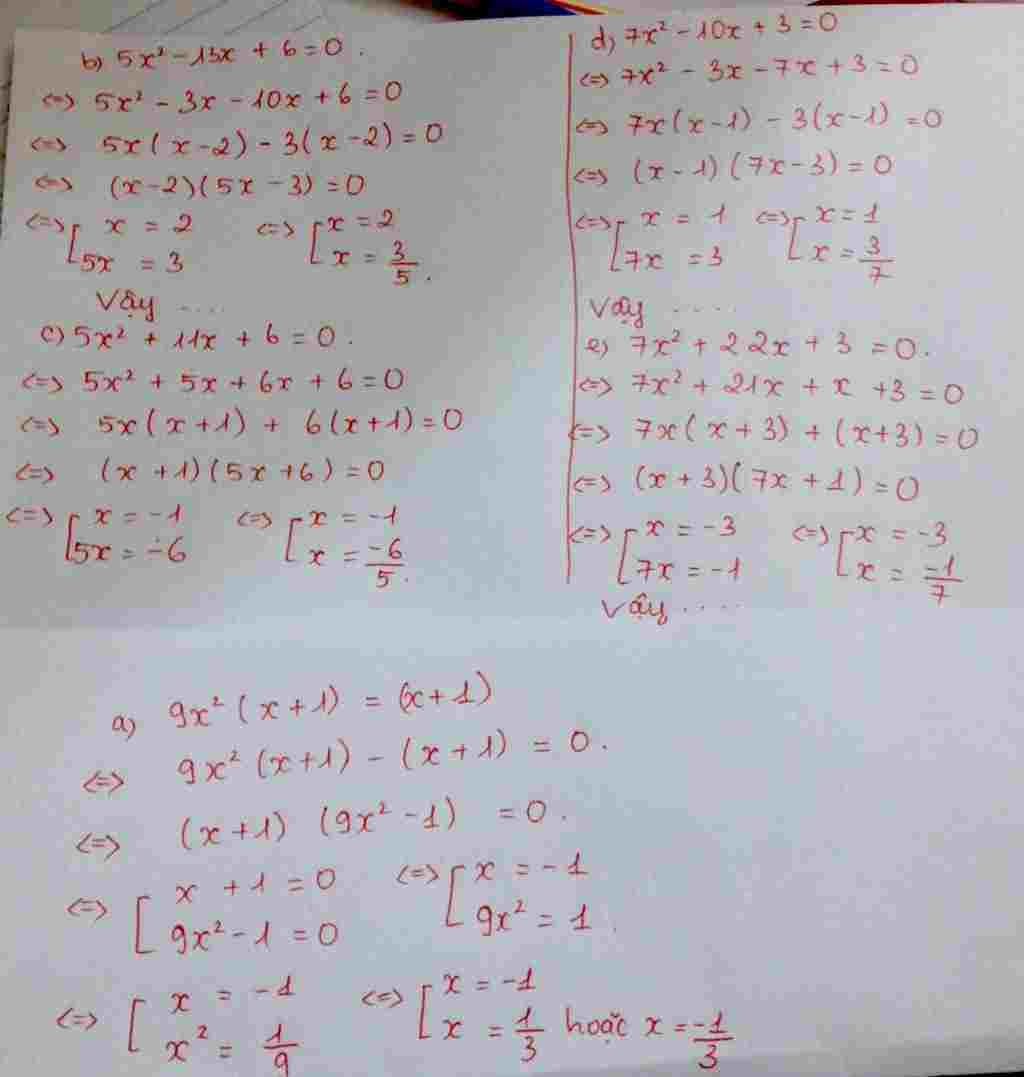 b) 5x² - 13x + 6 = 0.
<=> 5x² - 3x - 10x + 6 = 0
<=> 5x(x-2) - 3(x-2) = 0
<=> (x-2)(5x-3) = 0
<=> [ x = 2 <=> [ x = 2
5x = 3 x = 3/5.
Vậy ....
c) 5x² + 11x + 6 = 0.
<=> 5x² + 5x + 6x + 6 = 0
<=> 5x(x+1) + 6(x+1) = 0
<=> (x+1)(5x+6) = 0
<=> [ x = -1 <=> [ x = -1
5x = -6 x = -6/5.
d) 7x² - 10x + 3 = 0
<=> 7x² - 3x - 7x + 3 = 0
<=> 7x(x-1) - 3(x-1) = 0
<=> (x-1)(7x-3) = 0
<=> [ x = 1 <=> [ x = 1
7x = 3 x = 3/7
Vậy ....
e) 7x² + 22x + 3 = 0.
<=> 7x² + 21x + x + 3 = 0
<=> 7x(x+3) + (x+3) = 0
<=> (x+3)(7x+1) = 0
<=> [ x = -3 <=> [ x = -3
7x = -1 x = -1/7
Vậy ....
a) 9x²(x+1) = (x+1)
<=> 9x²(x+1) - (x+1) = 0.
<=> (x+1) (9x²-1) = 0.
<=> [ x + 1 = 0 <=> [ x = -1
9x² - 1 = 0 9x² = 1
<=> [ x = -1 <=> [ x = -1
x² = 1/9 x = 1/3 hoặc x = -1/3